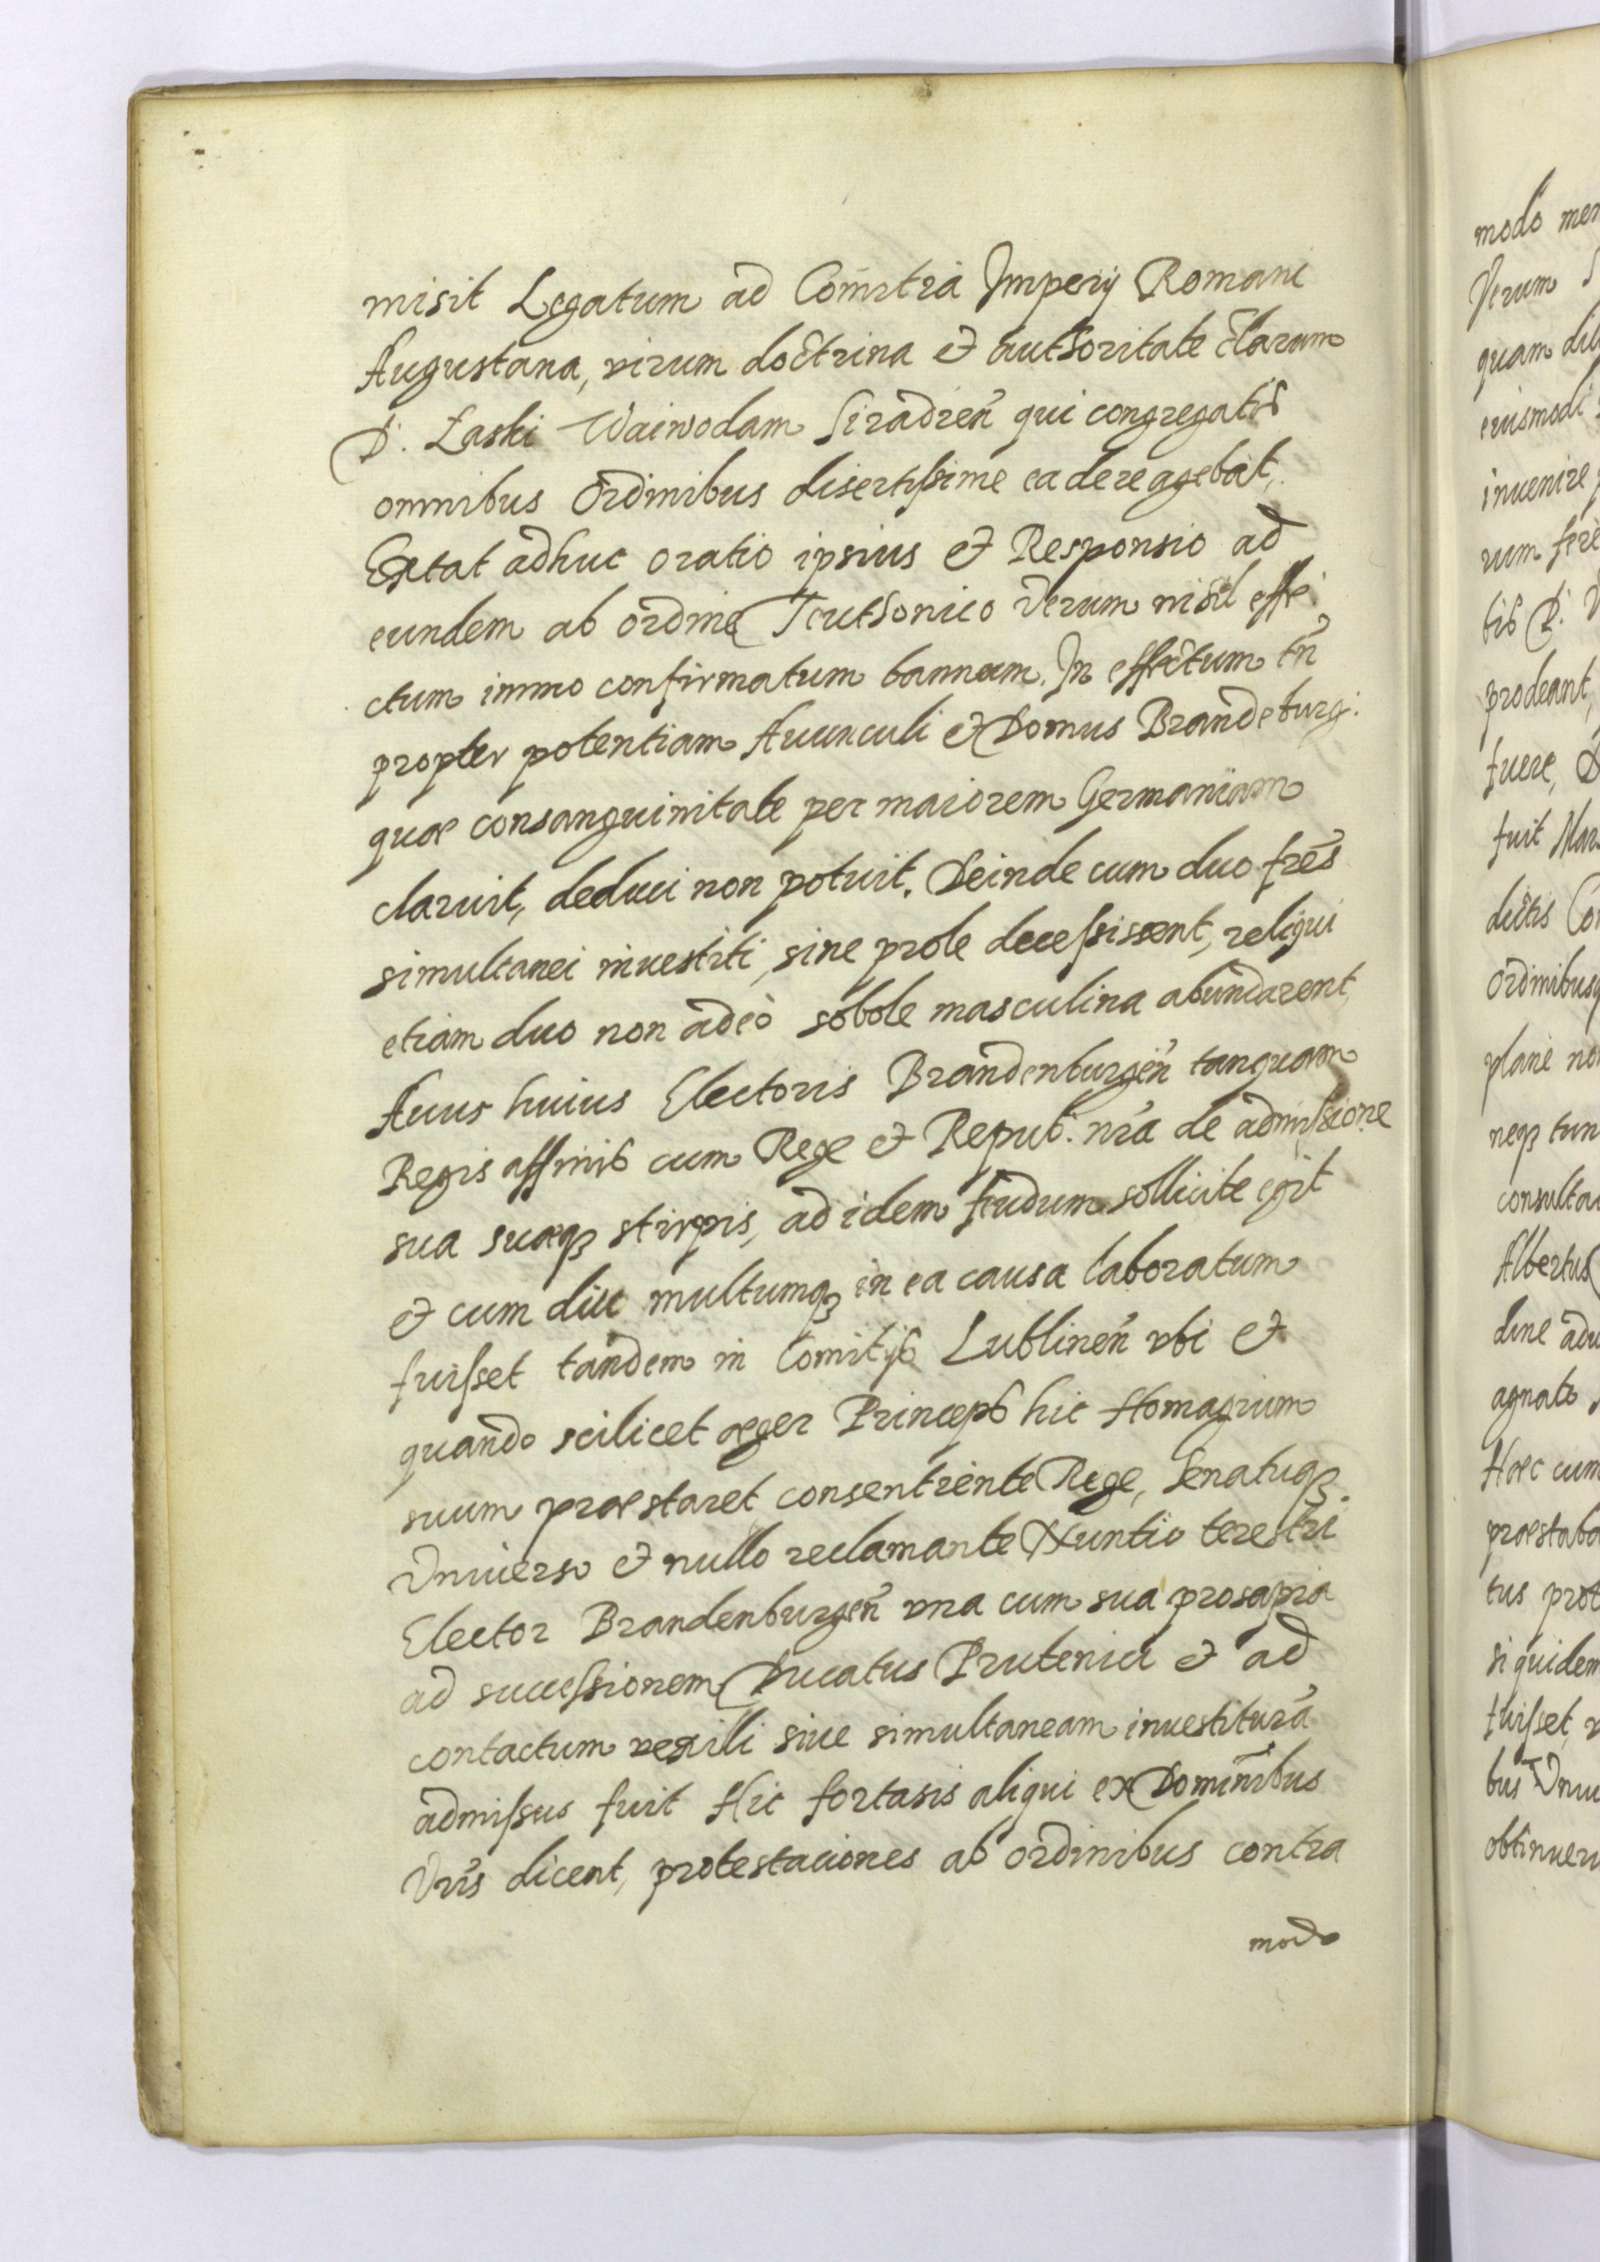 misit Legatum ad Comitia Imperij Romani
Augustana, virum doctrina et authoritate Clarum
D. Łaski Waiwodam Siradień qui congregatis
omnibus Ordinibus disertissime ea de re agebat,
Extat adhuc oratio ipsius et Responsio ad
eundem ab ordine Teuthonico Verum nihil effe
ctum immo confirmatum bannum. In effectum tñ
propter potentiam Auunculi et Domus Brandeburg.
quæ consanguinitate per maiorem Germaniam
claruit, deduci non potuit. Deinde cum duo frẽs
simultanei inuestiti, sine prole decessissent, reliqui
etiam duo non adeò sobole masculina abundarent,
Auus huius Electoris Brandenburgeñ tanquam
Regis affinis cum Rege et Repub. nr̃a de admissione
sua suæq3 stirpis, ad idem feudum sollicite egit
et cum diu multumq3 in ea causa laboratum
fuisset tandem in Comitijs Lublineñ vbi et
quando scilicet æger Princeps hic Homagium
suum præstaret consentiente Rege, Senatuq3.
Vniuerso et nullo reclamante Nuntio terestri
Elector Brandenburgeñ vna cum sua prosapia
ad successionem Ducatus Prutenici et ad
contactum vexilli siue simultaneam inuestiturã
admissus fuit Hic fortasis aliqui ex Dominibus
Vr̃is dicent, protestaciones ab ordinibus contra
modo
modo
Verum
quam
eiusmodi
inuenire
rum
tis D.
prodeant,
fuere,
fuit
dictis
Ordinibusq
plane
neq3
Albertus
agnato
Hæc cum
si quidem
fuisset,